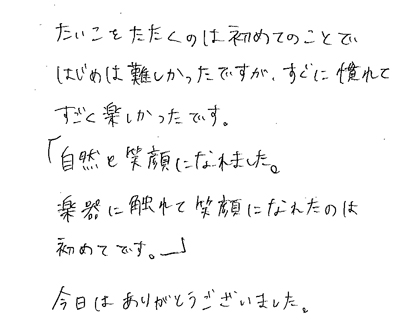 たいこをたたくのは初めてのことで
はじめは難しかったですが、すぐに慣れて
すごく楽しかったです。
「自然と笑顔になれました。
楽器に触れて笑顔になれたのは
初めてです。」
今日はありがとうございました。